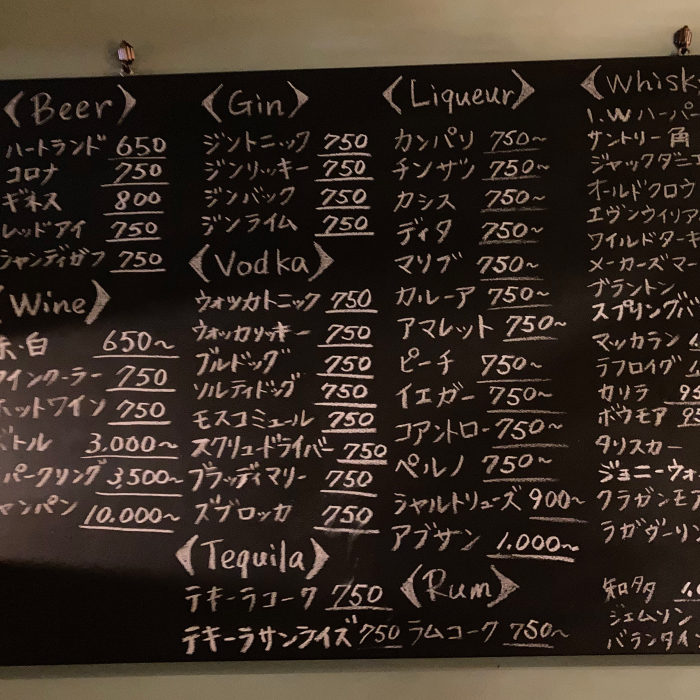 Beer
ハートランド 650
コロナ 750
ギネス 800
レッドアイ 750
シャンディガフ 750
Wine
赤・白 650~
ワインクーラー 750
ホットワイン 750
ボトル 3,000~
パークリング 3,500~
ャンパン 10.000~
Gin
ジントニック 750
ジンリッキー 750
ジンバック 750
ジンライム 750
Vodka
ウォツカトニック 750
ウォッカリッキー 750
ブルドッグ 750
ソルティドッグ 750
モスコミュール 750
スクリュードライバー 750
ブラッディマリー 750
ズブロッカ 750
Tequila
テキーラコーク 750
テキーラサンライズ 750
Liqueur
カンパリ 750~
チンザノ 750~
カシス 750~
ディタ 750~
マリブ 750~
カルーア 750~
アマレット 750~
ピーチ 750~
イエガー 750~
コアントロー 750~
ペルノ 750~
シャルトリューズ 900~
アブサン 1.000~
Rum
ラムコーク 750~
Whisk
I.Wハーパ
サントリー角
ジャックダニ
オールドクロウ
エヴンウィリア
ワイルドターキ
メーカーズマー
ブラントン
スプリングバ
マッカラン
ラフロイグ
カリラ
ボウモア
タリスカー
ジョニーウォ
クラガンモ
ラガヴーリン
知多
ジェムソン
バランタイ